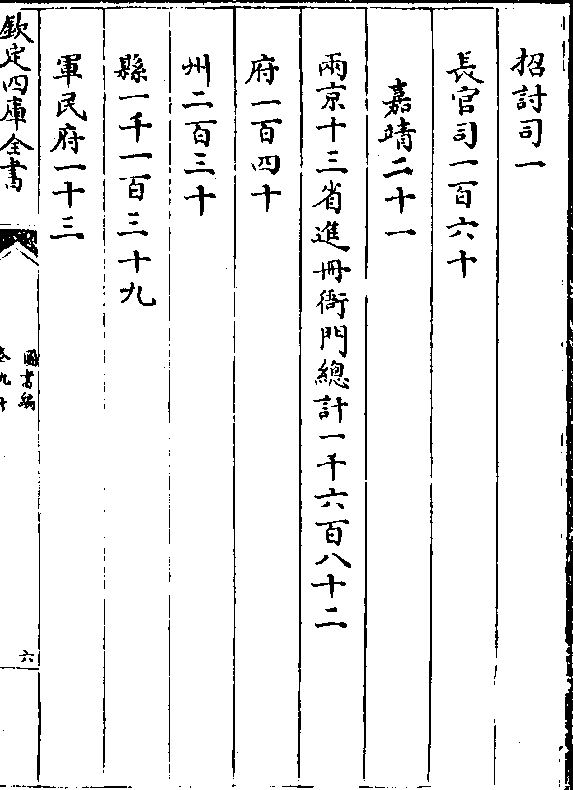 招討司一
長官司一百六十
嘉靖二十一
兩京十三省進冊衙門總計一千六百八十二
府一百四十
州二百三十
縣一千一百三十九
軍民府一十三
欽定四庫全書
圖書編
卷九十
六